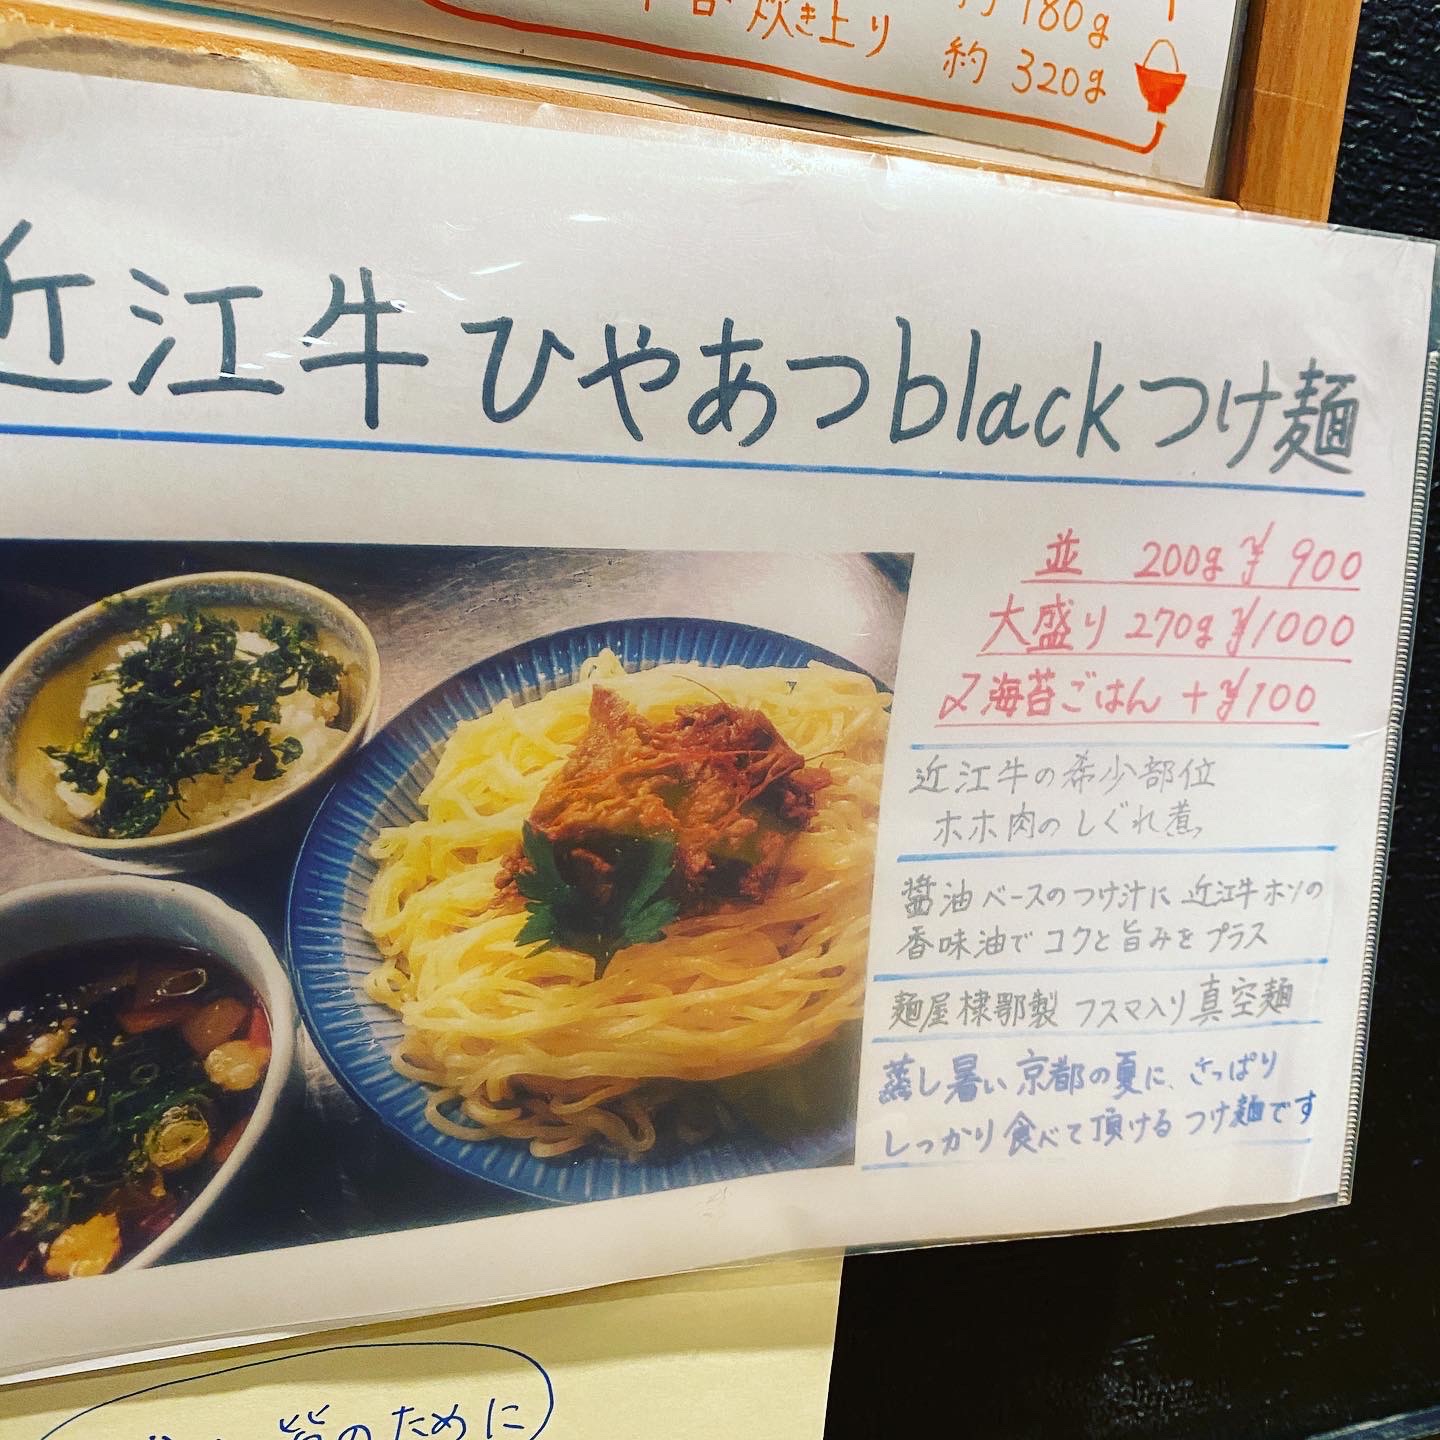 炊き上り 約 320g
180g
近江牛 ひやあつblackつけ麺
並 200g ¥900
大盛り 270g ¥1000
〆海苔ごはん +¥100
近江牛の希少部位
ホホ肉のしぐれ煮
醤油ベースのつけ汁に 近江牛ホソの
香味油でコクと旨みをプラス
麺屋棣鄂製 フスマ入り真空麺
蒸し暑い京都の夏に、さっぱり
しっかり食べて頂けるつけ麺です
のために